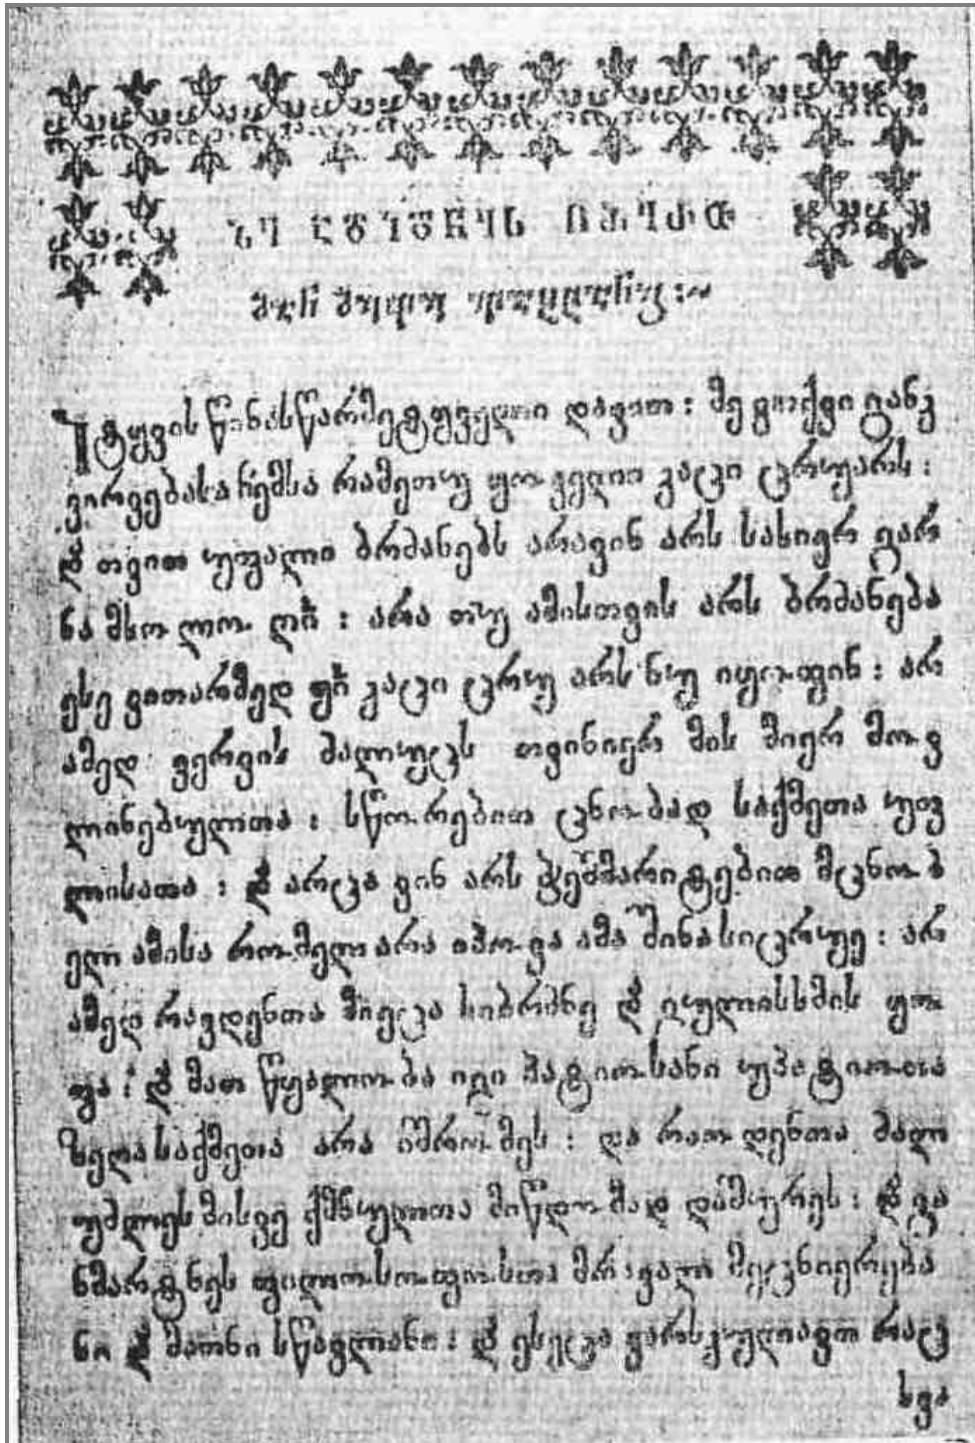 იტყვის წინასწარმეტყველი დავით : მე ვთქვი განკ
ვირვებასა ჩემსა რამეთუ ყოველი კაცი ცრუარს :
და თვით უფალი ბრძანებს არავინ არს სახიერ გარ
ნა მხოლო ღნ : არა თუ ამისთვის არს ბრძანება
ესე ვითარმედ ყნ კაცი ცრუ არს ნუ იყოფინ : არ
ამედ ვერვის ძალუცს თვინიერ მის მიერ მოვ
ლინებულთა : სწორებით ცნობად საქმეთა უფ
ლისათა : და არცა ვინ არს ჭეშმარიტებით მცნობ
ელ ამისა რომელ არა იპოვა ამა შინა სიცრუე : არ
ამედ რავდენთა მიეცა სიბრძნე და გულისხმის ყო
ფა : და მათ წყალობა იგი პატიოსანი უპატიოთა
ზედა საქმეთა არა იშრომეს : და რაოდენთა ძალ
უძლეს მისვე ქმნულთა მიწდომად დაშურეს : და გა
ნმარტნეს ფილოსოფოსთა მრავალი მეცნიერება
ნი და მათნი სწავლანი : და ესეცა ვარსკულიავთ რაც
სვა